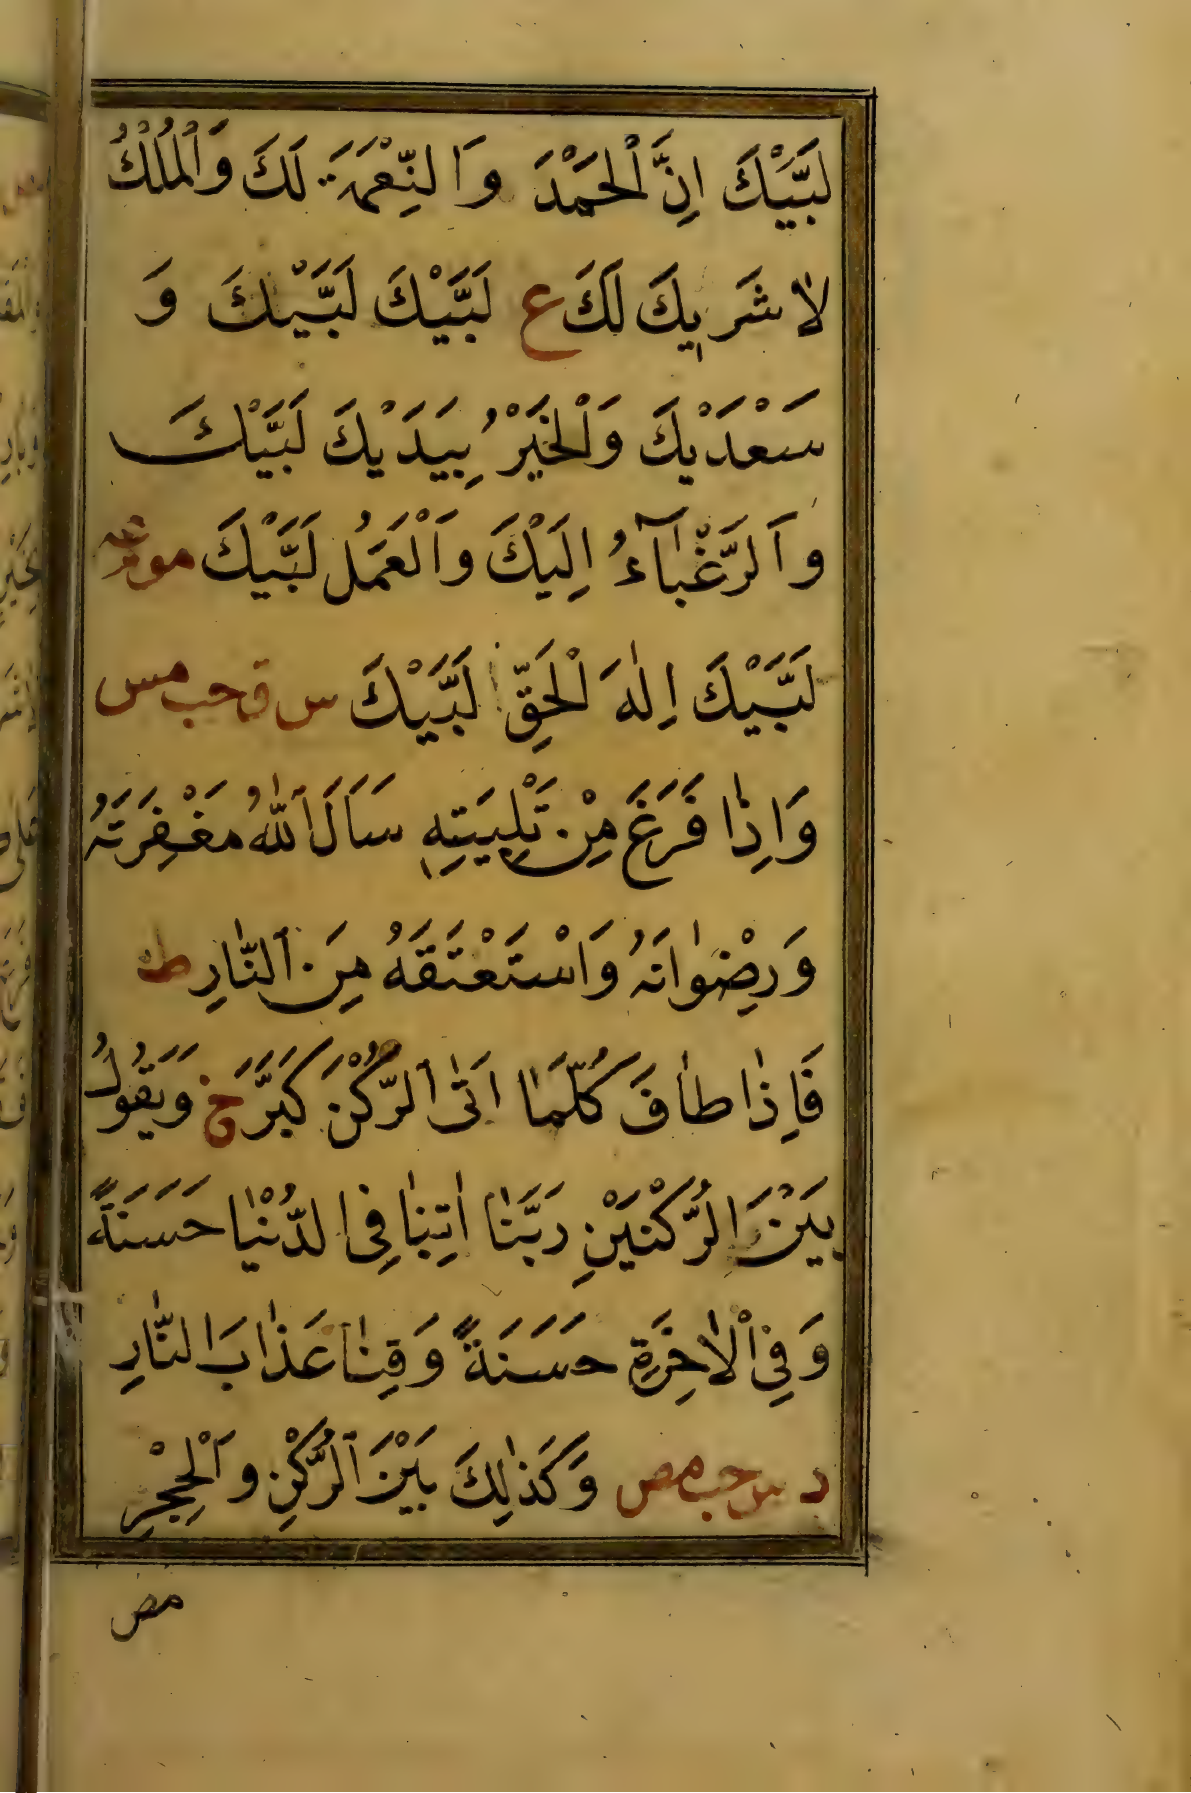 لَبَّيْكَ اِنَّ الْحَمْدَ وَالنِّعْمَةَ لَكَ وَالْمُلْكُ
لَا شَرِيكَ لَكَ ع لَبَّيْكَ لَبَّيْكَ وَ
سَعْدَيْكَ وَالْخَيْرُ بِيَدَيْكَ لَبَّيْكَ
وَالرَّغْبَآءُ اِلَيْكَ وَالْعَمَلُ لَبَّيْكَ
لَبَّيْكَ اِلٰهَ الْحَقِّ لَبَّيْكَ س ق حب مس
وَاِذَا فَرَغَ مِنْ تَلْبِيَتِهِ سَاَلَ اللّٰهَ مَغْفِرَتَهُ
وَرِضْوَانَهُ وَاسْتَعْتَقَهُ مِنَ النَّارِ ط
فَاِذَا طَافَ كُلَّمَا اَتَى الرُّكْنَ كَبَّرَ خ وَيَقُولُ
بَيْنَ الرُّكْنَيْنِ رَبَّنَا اٰتِنَا فِى الدُّنْيَا حَسَنَةً
وَفِى الْاٰخِرَةِ حَسَنَةً وَقِنَا عَذَابَ النَّارِ
د س حب مص وَكَذٰلِكَ بَيْنَ الرُّكْنِ وَالْحِجْرِ
مص